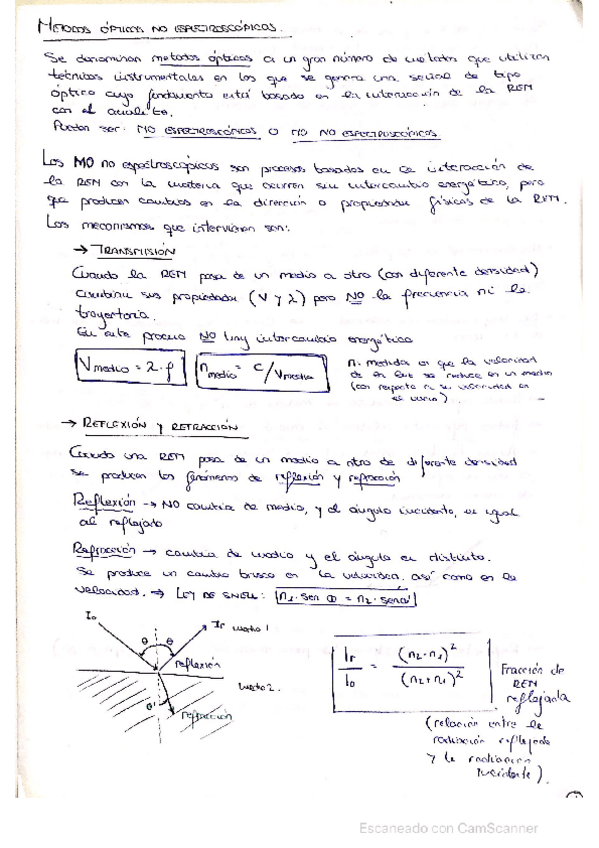 METODOS ÓPTICOS NO ESPECTROSCÓPICOS.
Se denominan metodos ópticos a un gran número de metodos que utilizan
técnicas instrumentales en los que se genera una señal de tipo
óptico cuyo fundamento está basado en la interacción de la REM
con el analito.
Pueden ser: MO ESPECTROSCÓPICOS O MO NO ESPECTROSCÓPICOS
Los MO no espectroscópicos son procesos basados en la interacción de
la REM con la materia que ocurren sin intercambio energético, pero
que producen cambios en la dirección o propiedades físicas de la REM.
Los mecanismos que intervienen son:
→ TRANSMISIÓN
Cuando la REM pasa de un medio a otro (con diferente densidad)
cambian sus propiedades (V y λ) pero NO la frecuencia ni la
trayectoria.
En este proceso NO hay intercambio energético
Vmedio = λ · f
nmedio = c / Vmedio
n: medida en que la velocidad
de la luz se reduce en un medio
(con respecto a su velocidad en
el vacío)
→ REFLEXIÓN Y REFRACCIÓN
Cuando una REM pasa de un medio a otro de diferente densidad
se producen los fenómenos de reflexión y refracción
Reflexión → NO cambia de medio, y el ángulo incidente, es igual
al reflejado
Refracción → cambia de medio y el ángulo es distinto.
Se produce un cambio brusco en la velocidad, así como en la
velocidad. → LEY DE SNELL: n1 · sen θ = n2 · sen θ'
I0
θ θ
Ir medio 1
reflexión
medio 2.
θ'
refracción
Ir / I0 = (n2 - n1)² / (n2 + n1)²
Fracción de
REM
reflejada
(relación entre la
radiación reflejada
y la radiación
incidente).
Escaneado con CamScanner